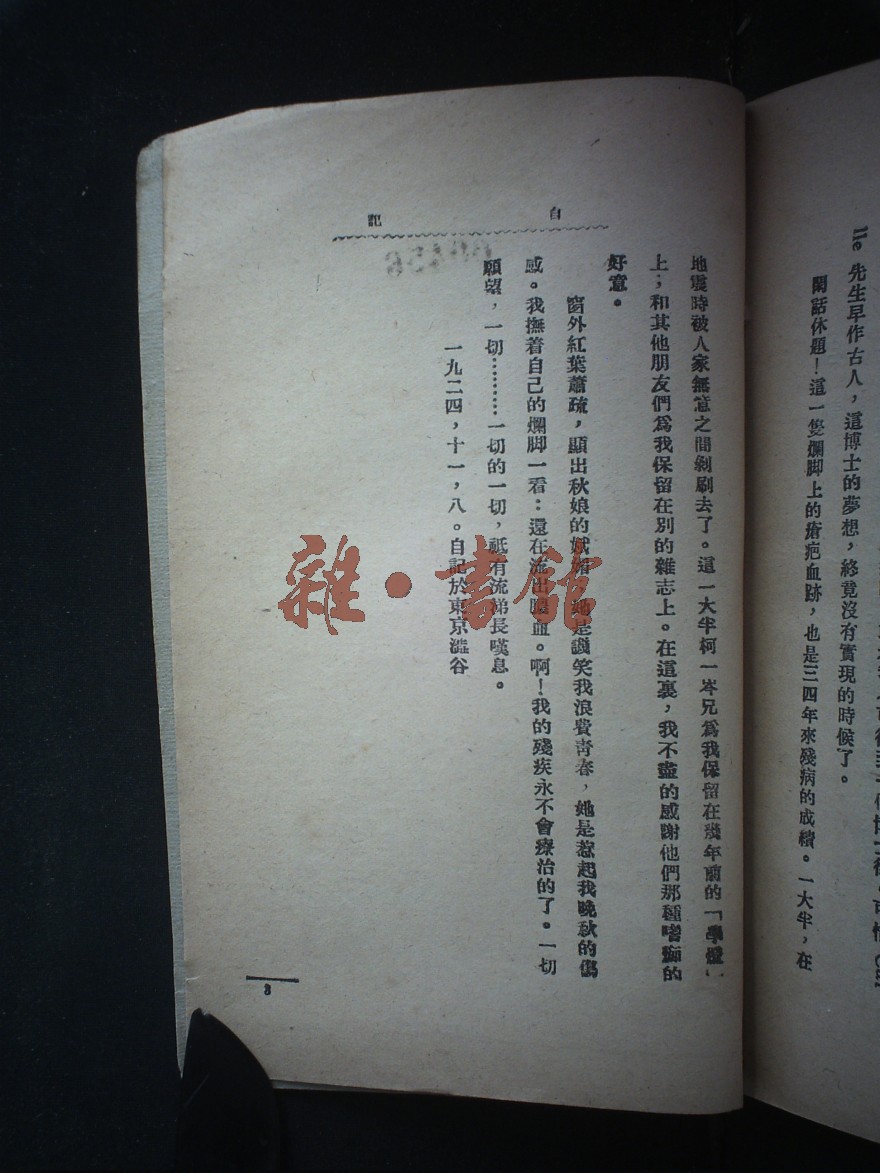 lle 先生早作古人，這博士的夢想，終竟沒有實現的時候了。
閑話休題！這一隻爛脚上的瘡疤血跡，也是三四年來殘病的成績。一大半，在
自記
地震時被人家無意之間剝刷去了。這一大半柯一岑兄爲我保留在幾年前的「學燈」
上；和其他朋友們爲我保留在別的雜志上。在這裏，我不盡的感謝他們那種嗜痂的
好意。
窗外紅葉蕭疏，顯出秋娘的娥媚，她是譏笑我浪費青春，她是惹起我晚秋的傷
感。我撫着自己的爛脚一看：還在流出膿血。啊！我的殘疾永不會療治的了。一切
願望，一切………一切的一切，祗有流涕長嘆息。
一九二四，十一，八。自記於東京澁谷
3
雜·書館